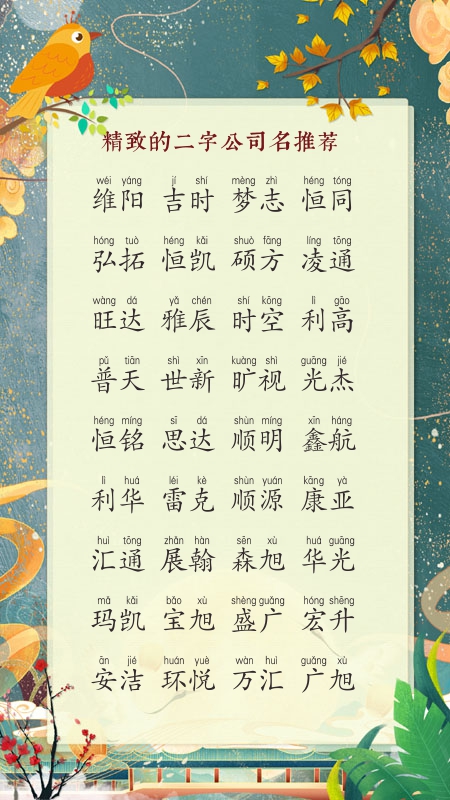 精致的二字公司名推荐
wéi yáng jí shí mèng zhì héng tóng
维阳 吉时 梦志 恒同
hóng tuò héng kǎi shuò fāng líng tōng
弘拓 恒凯 硕方 凌通
wàng dá yǎ chén shí kōng lì gāo
旺达 雅辰 时空 利高
pǔ tiān shì xīn kuàng shì guāng jié
普天 世新 旷视 光杰
héng míng sī dá shùn míng xīn háng
恒铭 思达 顺明 鑫航
lì huá léi kè shùn yuán kāng yà
利华 雷克 顺源 康亚
huì tōng zhǎn hàn sēn xù huá guāng
汇通 展翰 森旭 华光
mǎ kǎi bǎo xù shèng guǎng hóng shēng
玛凯 宝旭 盛广 宏升
ān jié huán yuè wàn huì guǎng xù
安洁 环悦 万汇 广旭